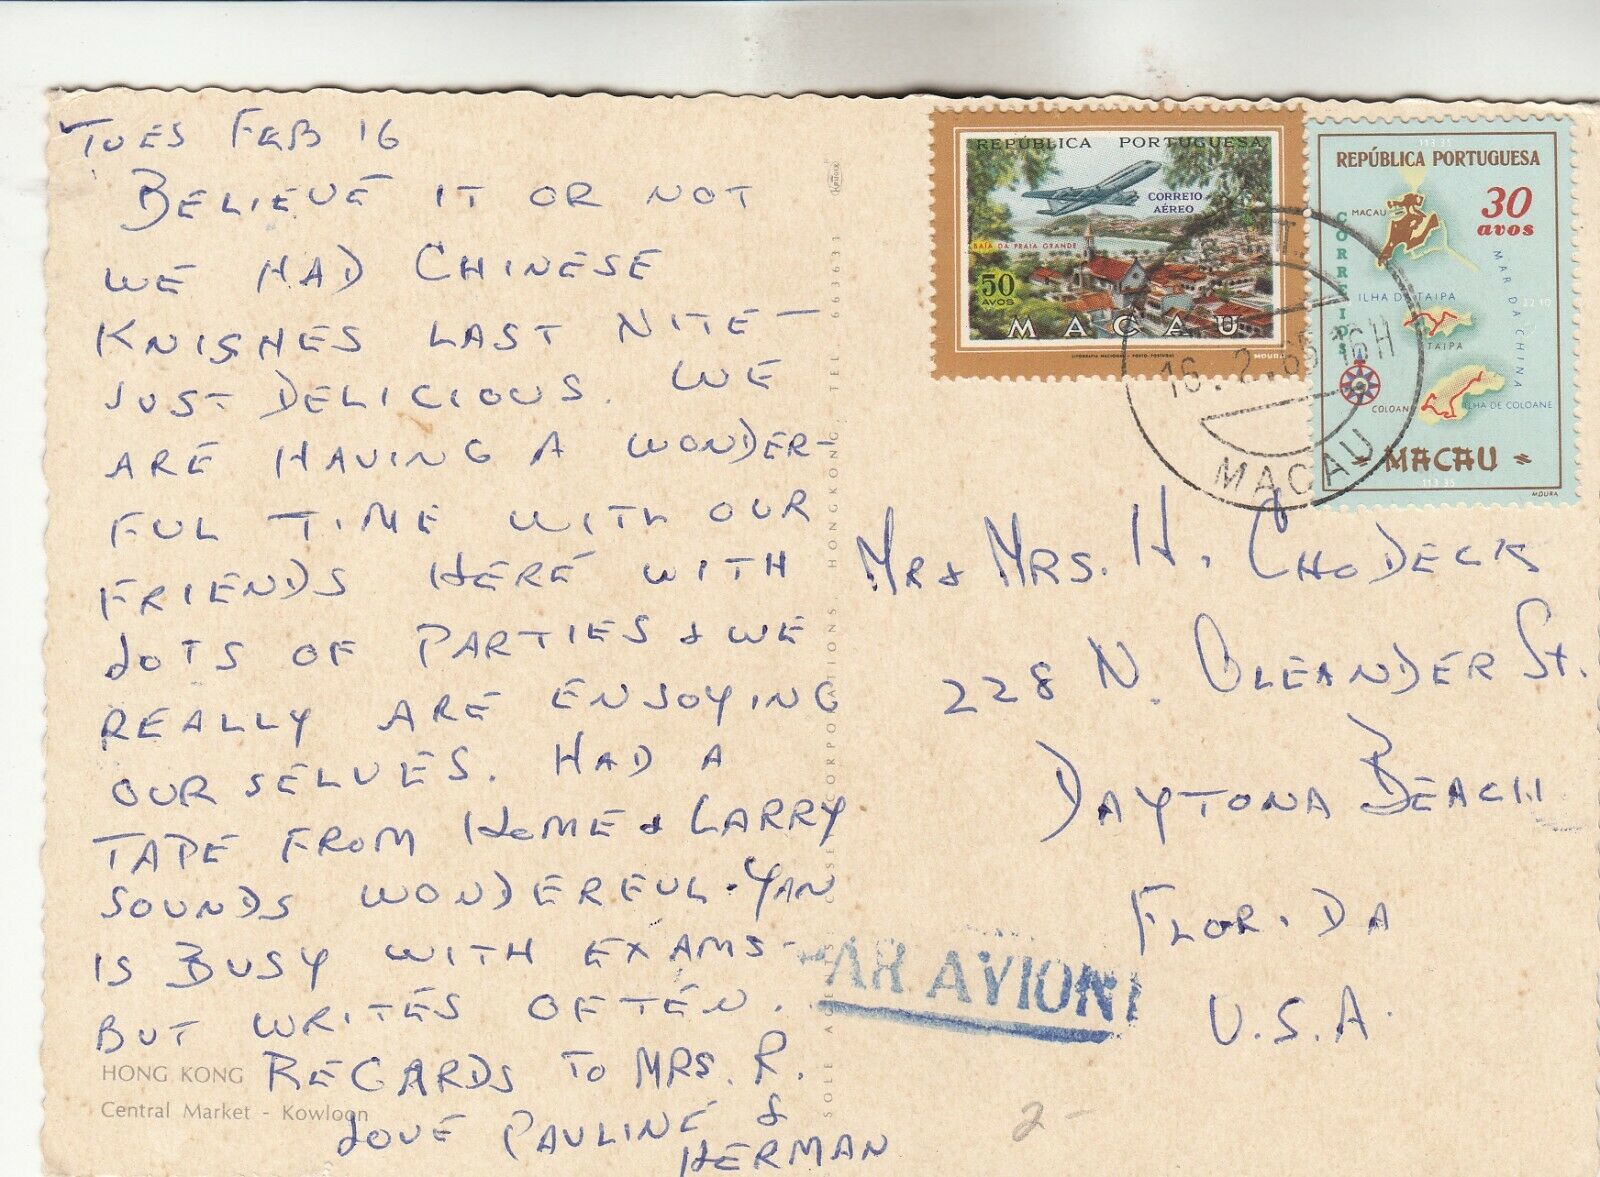 TUES FEB 16
BELIEVE IT OR NOT
WE HAD CHINESE
KNISHES LAST NITE -
JUST DELICIOUS. WE
ARE HAVING A WONDER-
FUL TIME WITH OUR
FRIENDS HERE WITH
LOTS OF PARTIES & WE
REALLY ARE ENJOYING
OUR SELVES. HAD A
TAPE FROM HOME & LARRY
SOUNDS WONDERFUL - YAN
IS BUSY WITH EXAMS -
BUT WRITES OFTEN.
REGARDS TO MRS. R.
LOVE PAULINE &
HERMAN
HONG KONG
Central Market - Kowloon
HONGKONG, TEL 663633
REPÚBLICA PORTUGUESA
CORREIO
AÉREO
BAÍA DA PRAIA GRANDE
50
AVOS
MACAU
LITOGRAFIA NACIONAL - PORTO - PORTUGAL
MOURA
REPÚBLICA PORTUGUESA
30
avos
CORREIOS
MACAU
MAR DA CHINA
ILHA DA TAIPA
22 10
TAIPA
COLOANE
ILHA DE COLOANE
MACAU
113 35
MOURA
16.2.65 16H
MACAU
MR & MRS. H. CHODECK
228 N. OLEANDER ST.
DAYTONA BEACH
FLORIDA
U.S.A.
PAR AVION
2-